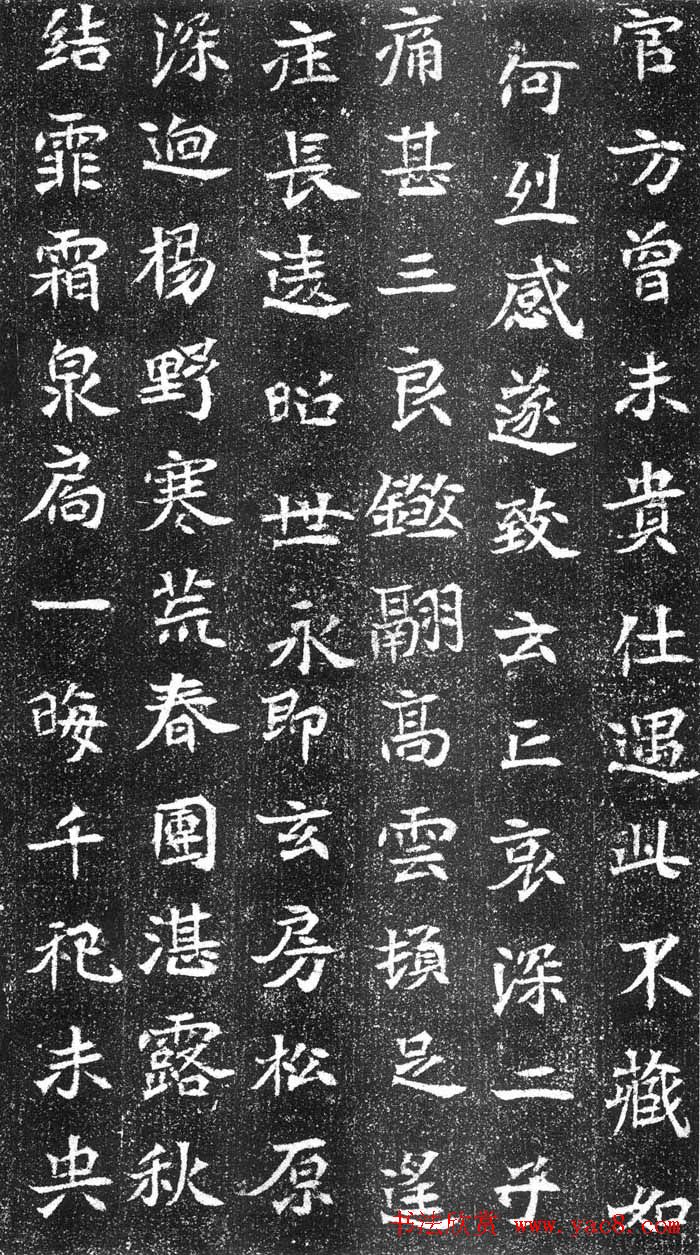 官方曾未貴仕遇此不藏如
何烈感遂致云亡哀深二子
痛甚三良鎩翮高雲頓足逵
庄長遠昭世永即玄房松原
深逈楊野寒荒春團湛露秋
結霏霜泉扃一晦千祀未央
书法欣赏 www.yac8.com